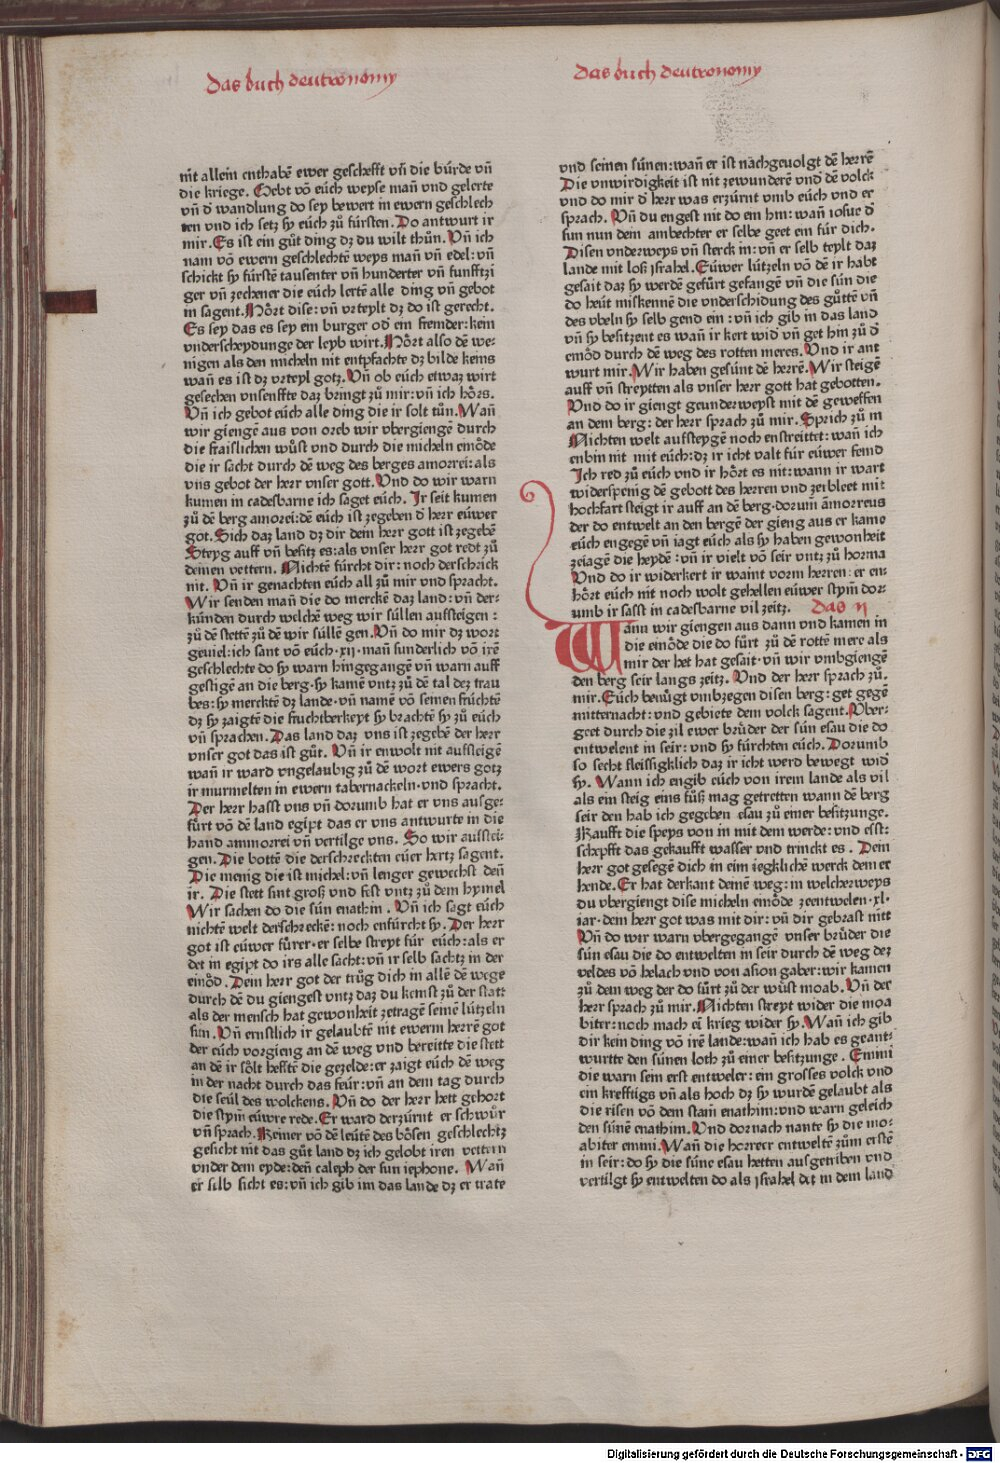 das buch deutronomy
nit allein enthabē ewer geschefft vñ die búrde vñ
die kriege. Hebt vō eúch weyse mañ vnd gelerte
vñ d̄ wandlung do sey bewert in ewern geschlech
ten vnd ich setz sy eúch zů fúrsten. Do antwurt ir
mir. Es ist ein gůt ding dz du wilt thůn. Vñ ich
nam vō ewern geschlechtē weys mañ vñ edel: vñ
schickt sy fúrstē tausenter vñ hunderter vñ funfftzi
ger vñ zechener die eúch lertē alle ding vñ gebot
in sagent. Hört dise: vñ vrteylt dz do ist gerecht.
Es sey das es sey ein burger od̄ ein fremder: kein
vnderscheydunge der leyb wirt. Hört also dē we⸗
nigen als den micheln nit entpfachte dz bilde keins
wañ es ist dz vrteyl gotz. Vñ ob eúch etwaz wirt
gesechen vnsenffte daz bringt zů mir: vñ ich hörs.
Vñ ich gebot eúch alle ding die ir solt tůn. Wañ
wir giengē aus von oreb wir vbergiengē durch
die fraislichen wůst vnd durch die micheln einöde
die ir sacht durch dē weg des berges amorrei: als
vns gebot der herr vnser gott. Vnd do wir warn
kumen in cadesbarne ich saget eúch. Ir seit kumen
zů dē berg amorei: dē eúch ist zegeben d̄ herr eúwer
got. Sich daz land dz dir dem herr gott ist zegebē
Steyg auff vñ besitz es: als vnser herr got redt zů
deinen vettern. Nichtē fúrcht dir: noch derschrick
nit. Vñ ir genachten eúch all zů mir vnd spracht.
Wir senden mañ die do merckē daz land: vñ der⸗
kúnden durch welchē weg wir súllen aufsteigen:
zů dē stettē zů dē wir súllē gen. Vñ do mir dz wort
geuiel: ich sant vō eúch ·xij· mañ sunderlich vō irē
geschlechte do sy warn hingegangē vñ warn auff
gestigē an die berg· sy kamē vntz zů dē tal dez trau
bes: sy mercktē dz lande· vñ namē vō seinen frúchtē
dz sy zaigtē die fruchtberkeyt sy brachtē sy zů eúch
vñ sprachen. Das land daz vns ist zegebē der herr
vnser got das ist gůt. Vñ ir enwolt nit aufsteigē
wañ ir ward vngelaubig zů dē wort ewers gotz
ir murmelten in ewern tabernackeln· vnd spracht.
Der herr hasst vns vñ dorumb hat er vns ausge⸗
fúrt vō dē land egipt das er vns antwurte in die
hand ammorrei vñ vertilge vns. So wir aufstei⸗
gen. Die bottē die derschreckten eúer hertz sagent.
Die menig die ist michel: vñ lenger gewechst deñ
ir. Die stett sint groß vnd fest vntz zů dem hymel
Wir sachen do die sún enathin. Vñ ich sagt eúch
nichtē welt derschreckē: noch enfúrcht sy. Der herr
got ist eúwer fúrer· er selbe streyt fúr eúch: als er
det in egipt do irs alle sacht: vñ ir selb sachtz in der
einöd. Dein herr got der trůg dich in allē dē wege
durch dē du giengest vntz daz du kemst zů der statt
als der mensch hat gewonheit zetragē seinē lútzeln
sun. Vñ ernstlich ir gelaubtē nit ewerm herrē got
der eúch vorgieng an dē weg vnd bereitte die stett
an dē ir sölt hefftē die gezelde: er zaigt eúch dē weg
in der nacht durch das feúr: vñ an dem tag durch
die seúl des wolckens. Vñ do der herr hett gehort
die stym̄ eúwre rede. Er ward derzúrnt er schwůr
vñ sprach. Keiner vō dē leútē des bösen geschlechtz
gesicht nit das gůt land dz ich gelobt iren vettern
vnder dem eyde: deñ caleph der sun iephone. Wañ
er selb sicht es: vñ ich gib im das lande dz er trate
das buch deutronomy
vnd seinen súnen: wañ er ist nachgeuolgt dē herrē
Die vnwirdigkeit ist nit zewunderē vnd dē volck
vnd do mir d̄ herr was erzúrnt vmb eúch vnd er
sprach. Vñ du engest nit do ein hin: wañ iosue d̄
sun nun dein ambechter er selbe geet ein fúr dich.
Disen vnderweys vñ sterck in: vñ er selb teylt daz
lande mit loß jsrahel. Eúwer lútzeln vō dē ir habt
gesait daz sy werdē gefúrt gefangē vñ die sún die
do heút miskennē die vnderschidung des gůttē vñ
des vbeln sy selb gend ein: vñ ich gib in das land
vñ sy besitzent es wañ ir kert wid̄ vñ get hin zů d̄
einöd durch dē weg des rotten meres. Vnd ir ant
wurt mir. Wir haben gesúnt dē herrē. Wir steigē
auff vñ streytten als vnser herr gott hat gebotten.
Vnd do ir giengt geunderweyst mit dē geweffen
an dem berg: der herr sprach zů mir. Sprich zů in
Nichten welt aufsteygē noch enstreittet: wañ ich
enbin nit mit eúch: dz ir icht valt fúr eúwer feind
Ich red zů eúch vnd ir hört es nit: wann ir wart
widerspenig dē gebott des herren vnd zerbleet mit
hochfart steigt ir auff an dē berg· dorum̄ am̄orreus
der do entwelt an den bergē der gieng aus er kame
eúch engegē vñ iagt eúch als sy haben gewonheit
zeiagē die heydē: vñ ir vielt vō seir vntz zů horma
Vnd do ir widerkert ir waint vorm herren: er en⸗
hört eúch nit noch wolt gehellen eúwer stym̄ dor⸗
umb ir sasst in cadesbarne vil zeitz. das ij
Wann wir giengen aus dann vnd kamen in
die einöde die do fúrt zů dē rottē mere als
mir der het hat gesait· vñ wir vmbgiengē
den berg seir langs zeitz. Vnd der herr sprach zů.
mir. Eúch benúgt vmbzegen disen berg: get gegē
mitternacht: vnd gebiete dem volck sagent. Vber⸗
geet durch die zil ewer brůder der sún esau die do
entwelent in seir: vnd sy fúrchten eúch. Dorumb
so secht fleissigklich daz ir icht werd bewegt wid̄
sy. Wann ich engib eúch von irem lande als vil
als ein steig eins fůß mag getretten wann dē berg
seir den hab ich gegeben esau zů einer besitzunge.
Kaufft die speys von in mit dem werde: vnd esst:
schepfft das gekaufft wasser vnd trinckt es. Dein
herr got gesegē dich in eim ieglichē werck deiner
hende. Er hat derkant deinē weg: in welcherweys
du vbergiengt dise micheln einöde zeentwelen ·xl·
iar· dein herr got was mit dir: vñ dir gebrast nitt
Vñ do wir warn vbergegangē vnser brůder die
sún esau die do entwelten in seir durch dē weg dez
veldes vō helach vnd von asion gaber: wir kamen
zů dem weg der do fúrt zů der wúst moab. Vñ der
herr sprach zů mir. Nichten streyt wider die moa
biter: noch mach eī krieg wider sy. Wañ ich gib
dir kein ding vō irē lande: wañ ich hab es geant⸗
wurtte den súnen loth zů einer besitzunge. Emini
die warn sein erst entweler: ein grosses volck vnd
ein krefftigs vñ als hoch dz sy wurdē gelaubt als
die risen vō dem stam̄ enathim: vnd warn geleich
den súnē enathim. Vnd dornach nante sy die mo⸗
abiter emini. Wañ die horreer entweltē zům erstē
in seir: do sy die súne esau hetten ausgetriben vnd
vertilgt sy entwelten do als jsrahel det in dem land
Digitalisierung gefördert durch die Deutsche Forschungsgemeinschaft - DFG